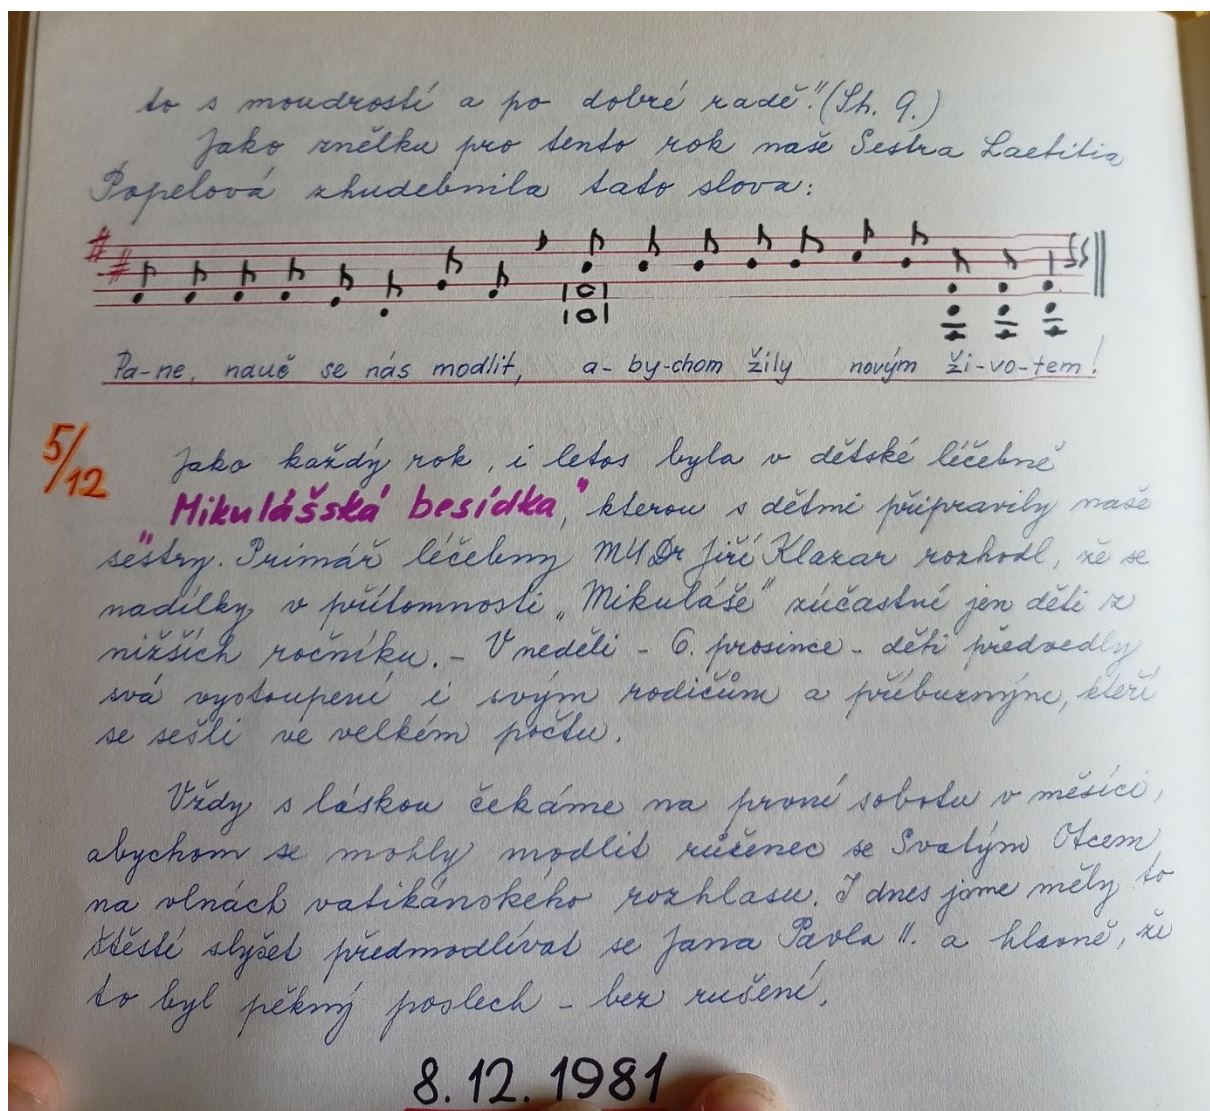 to s moudrostí a po dobré radě." (Sh. 9.)
Jako znělku pro tento rok naše Sestra Laetitia
Popelová zhudebnila tato slova:
Pa-ne, nauč se nás modlit, a-by-chom žily novým ži-vo-tem!
5/12
Jako každý rok, i letos byla v dětské léčebně
"Mikulášská besídka", kterou s dětmi připravily naše
sestry. Primář léčebny MUDr Jiří Klazar rozhodl, že se
nadílky v přítomnosti „Mikuláše" zúčastní jen děti z
nižších ročníku. - V neděli - 6. prosince - děti předvedly
svá vystoupení i svým rodičům a příbuzným, kteří
se sešli ve velkém počtu.
Vždy s láskou čekáme na první sobotu v měsíci,
abychom se mohly modlit růženec se Svatým Otcem
na vlnách vatikánského rozhlasu. I dnes jsme měly to
štěstí slyšet předmodlívat se Jana Pavla II. a hlavně, že
to byl pěkný poslech - bez rušení.
8. 12. 1981